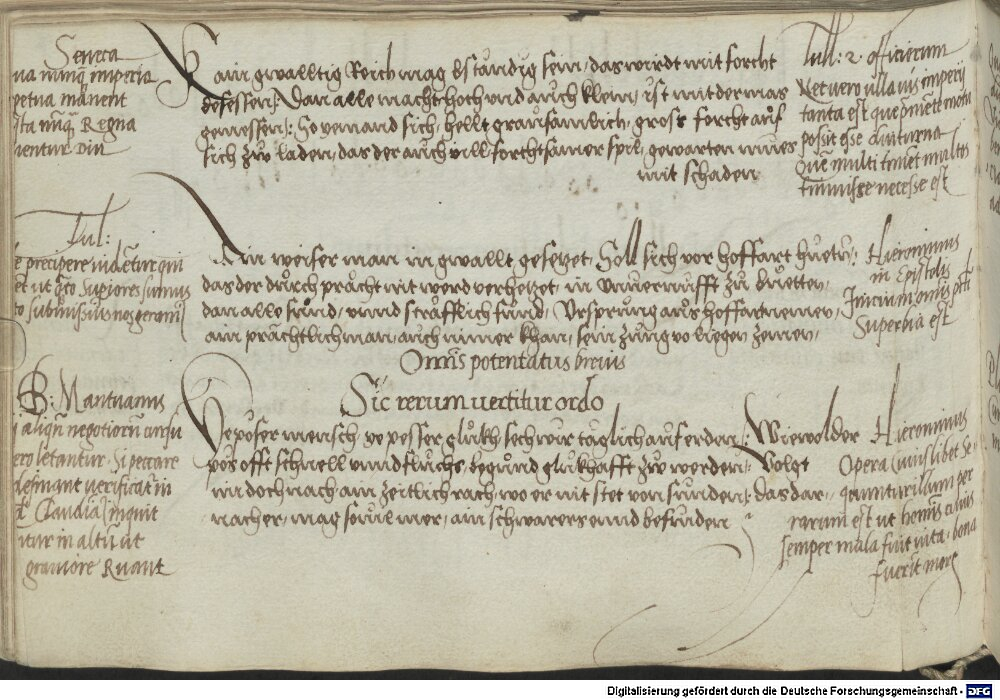 Seneca
imperia
manent
Regna
S ain gwalltig Reich mag bständig sein, das wirdt mit forcht
besessen: Dan alle macht hoch und auch klein, ist mit der mas
gemessen: So yemand sich, hellt grausamlich, gross forcht auf
sich zuo laden, das der auch vill forchtsamer spil, gewarten mues
mit schaden
Tul: 2. officiorum
Nec vero ulla vis imperij
tanta est que premente metu
possit esse diuturna
multi timent multos
timuisse necesse est
Tul:
precipere videntur qui
ut superiores sumus
submissius nos geramus
Ain weiser man in gwallt gesetzet, Soll sich vor hoffart hueten:
das der durch pracht nit werd verhetzet, in unvernufft zu wueten,
dan alle sünd, unnd sträfflich fünd, Ursprung aus hoffart nemen,
ain prächtlich man, auch nimer khan, sein zung vo liegen zemen,
Hieronimus
in Epistolis
Inicium omnis pcti
Superbia est
Omnis potentatus brevis
Sic rerum vertitur ordo
B: Mantuanus
negotiorum
letantur. Si peccare
desinant verificat in
Claudia inquit
in altum ut
graviore Ruant
Ye poser mensch, ye pesser glukh sech wir täglich auf erden: Wiewol der
pös offt schnell unnd fluchs, begünd glukhafft zuo werden: Volgt
im doch nach ain zeitlich rach, wo er nit stet von sünden: das dar-
nacher, mag sein vil mer, ain schwarers ennd befinden
Hieronimus
Opera
rarum est ut homini cuius
semper mala fuit vita, bona
fuerit mors
Digitalisierung gefördert durch die Deutsche Forschungsgemeinschaft - DFG